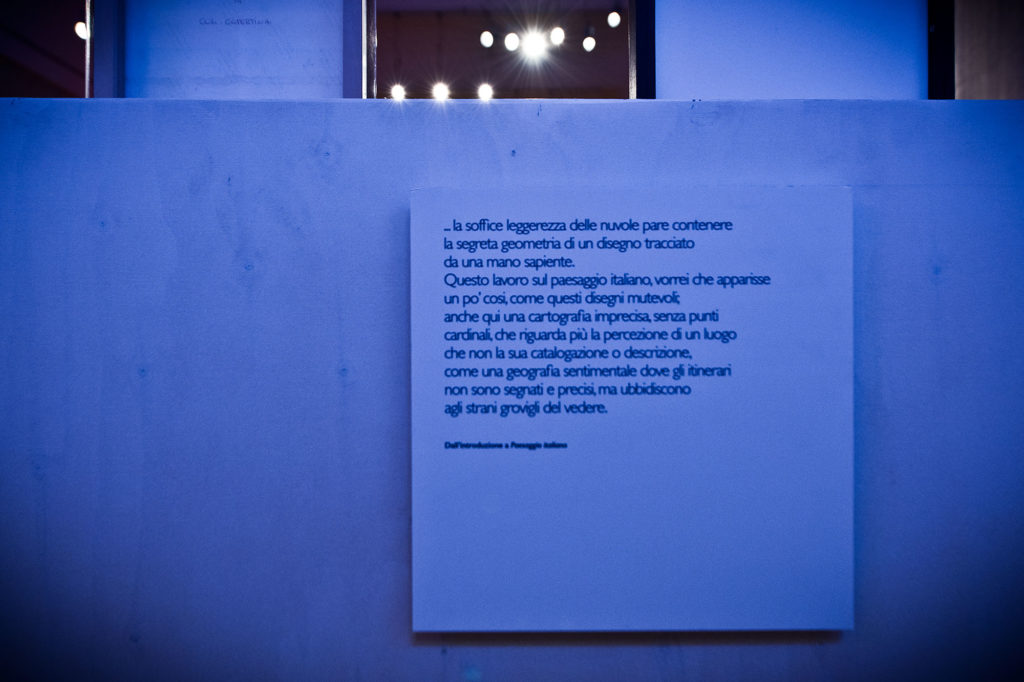 ... la soffice leggerezza delle nuvole pare contenere
la segreta geometria di un disegno tracciato
da una mano sapiente.
Questo lavoro sul paesaggio italiano, vorrei che apparisse
un po' così, come questi disegni mutevoli;
anche qui una cartografia imprecisa, senza punti
cardinali, che riguarda più la percezione di un luogo
che non la sua catalogazione o descrizione,
come una geografia sentimentale dove gli itinerari
non sono segnati e precisi, ma ubbidiscono
agli strani grovigli del vedere.
Dall'introduzione a Paesaggio italiano